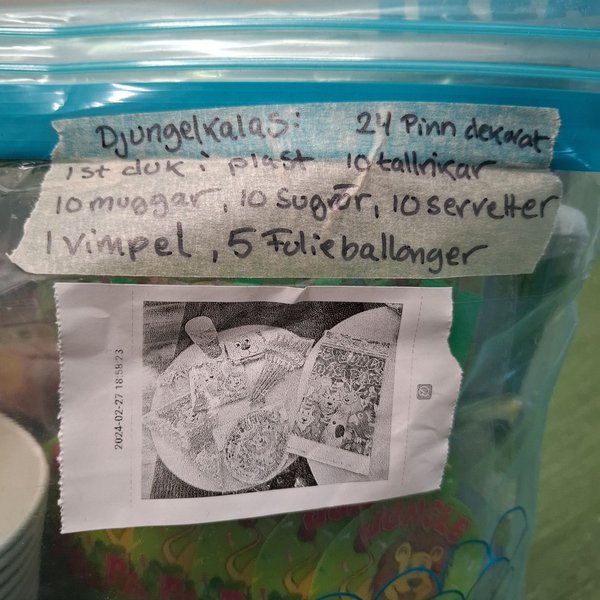 Djungelkalas: 24 Pinn dekorat
1 st duk i plast 10 tallrikar
10 muggar, 10 Sugrör, 10 servetter
1 Vimpel, 5 Folieballonger
2024-02-27 18:58:23
JUNGLE